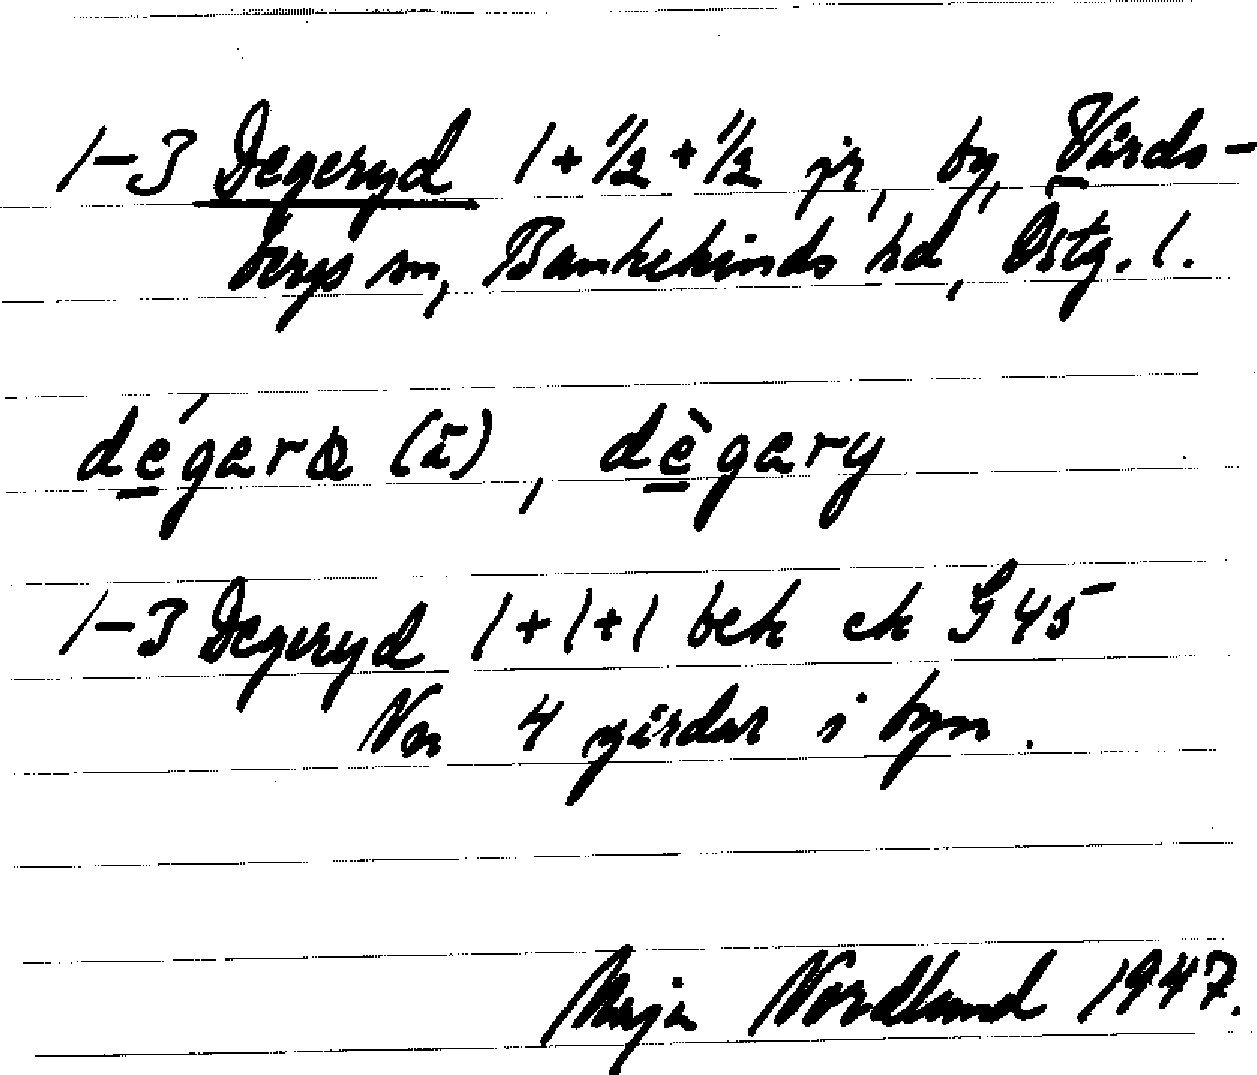 1–3 Degeryd 1 + 1/2 + 1/2 jr, by, Vårds-
bergs sn, Bankekinds hd, Östg. l.
dégarœ (ā), dègary
1–3 Degeryd 1+1+1 bek ek G 45
4 gårdar i byn.
Maja Nordlund 1947.